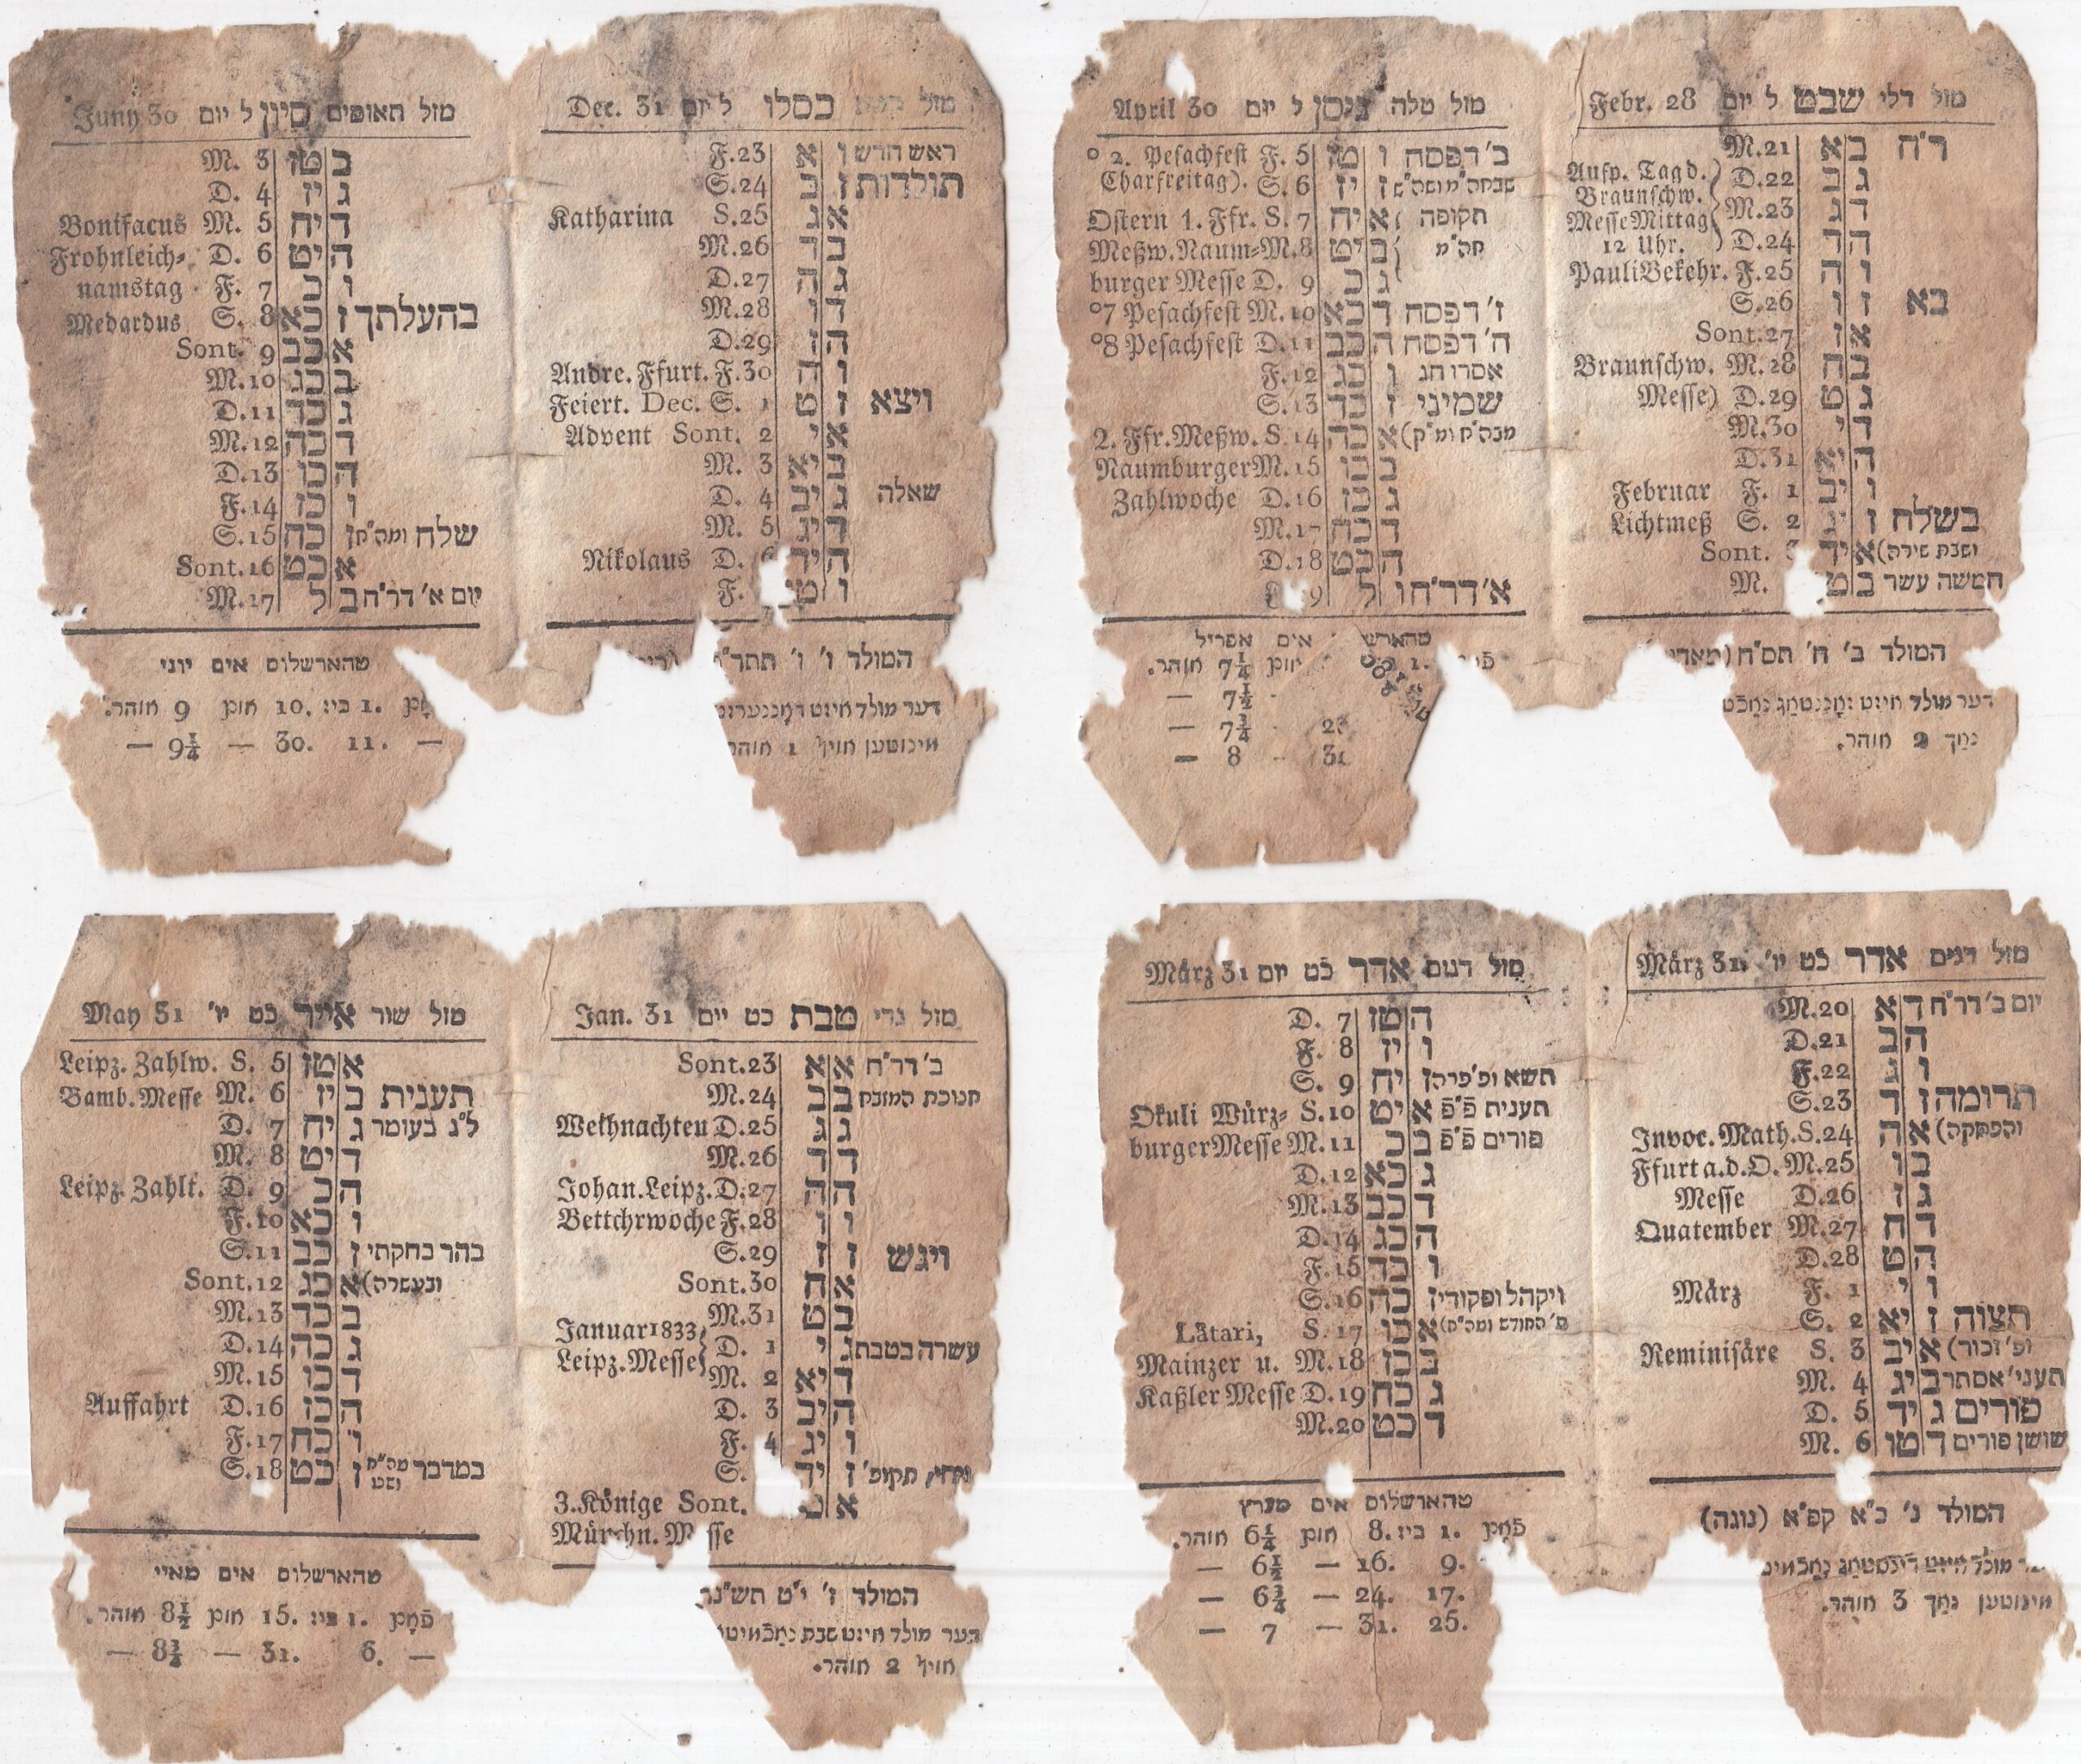 מזל תאומים סיון ל יום Juny 30
M. 3 טז ב
D. 4 יז ג
Bonifacus M. 5 יח ד
Frohnleich= D. 6 יט ה
namstag F. 7 כ ו
Medardus S. 8 כא ז בהעלתך
Sont. 9 כב א
M. 10 כג ב
D. 11 כד ג
M. 12 כה ד
D. 13 כו ה
F. 14 כז ו
S. 15 כח ז שלח ומה"ח
Sont. 16 כט א
M. 17 ל ב יום א' דר"ח
טהארשלום אים יוני
1. ביז 10. חוק 9 אוהר.
— 11. 30. — 9¼ —
מזל כסלו ל יום Dec. 31
F. 23 א ו ראש חדש
S. 24 ב ז תולדות
Katharina S. 25 ג א
M. 26 ד ב
D. 27 ה ג
M. 28 ו ד
D. 29 ז ה
Andre. Ffurt. F. 30 ח ו
Feiert. Dec. S. 1 ט ז ויצא
Advent Sont. 2 י א
M. 3 יא ב
D. 4 יב ג שאלה
M. 5 יג ד
Nikolaus D. 6 יד ה
F. טו ו
המולד ו' ו' תתר"
דער מולד היינט
מינוטען פֿאר 1 אוהר
מזל טלה ניסן ל יום April 30
° 2. Pesachfest F. 5 טז ו ב' דפסה
Charfreitag). S. 6 יז ז
Ostern 1. Ffr. S. 7 יח א תקופה
Meßw. Naum= M. 8 יט ב חה"מ
burger Messe D. 9 כ ג
°7 Pesachfest M. 10 כא ד ז' דפסה
°8 Pesachfest D. 11 כב ה ה' דפסה
F. 12 כג ו אסרו חג
S. 13 כד ז שמיני
2. Ffr. Meßw. S. 14 כה א (מבה"ח ומ"ק
Naumburger M. 15 כו ב
Zahlwoche D. 16 כז ג
M. 17 כח ד
D. 18 כט ה
9 ל ו א' דר"ח
אים אפריל
1. 7¼ אוהר.
7½ —
7¾ —
8 —
מזל דלי שבט ל יום Febr. 28
M. 21 א ב ר"ח
Aufp. Tag d. D. 22 ב ג
Braunschw.
Messe Mittag M. 23 ג ד
12 Uhr. D. 24 ד ה
Pauli Bekehr. F. 25 ה ו
S. 26 ו ז בא
Sont. 27 ז א
Braunschw. M. 28 ח ב
Messe) D. 29 ט ג
M. 30 י ד
D. 31 יא ה
Februar F. 1 יב ו
Lichtmeß S. 2 יג ז בשלח
Sont. 3 יד א (ושבת שירה
M. טו ב חמשה עשר
המולד ב' ח' תס"ח
דער מולד היינט
נאך 2 אוהר.
מזל שור אייר כט יו' May 31
Leipz. Zahlw. S. 5 טז א
Bamb. Messe M. 6 יז ב תענית
D. 7 יח ג ל"ג בעומר
M. 8 יט ד
Leipz. Zahlt. D. 9 כ ה
F. 10 כא ו
S. 11 כב ז בהר בחקתי
Sont. 12 כג א (ובעשרה
M. 13 כד ב
D. 14 כה ג
M. 15 כו ד
Auffahrt D. 16 כז ה
F. 17 כח ו
S. 18 כט ז במדבר מה"ח
טהארשלום אים מאיי
פֿאָן 1. ביז 15. חוק 8½ אוהר.
— 6. 31. — 8¾ —
מזל גדי טבת כט יום Jan. 31
Sont. 23 א א ב' דר"ח
M. 24 ב ב חנוכת המזבח
Weihnachten D. 25 ג ג
M. 26 ד ד
Johan. Leipz. D. 27 ה ה
Bettchrwoche F. 28 ו ו
S. 29 ז ז ויגש
Sont. 30 ח א
M. 31 ט ב
Januar 1833
D. 1 י ג עשרה בטבת
Leipz. Messe
M. 2 יא ד
D. 3 יב ה
F. 4 יג ו
S. יד ז ויחי, תקופ'
3. Könige Sont. א
Münchn. M sse
המולד ז' י"ט תש"נר
דער מולד היינט שבת
2 אוהר.
מזל דגים אדר כט יום März 31
D. 7 טז ה
F. 8 יז ו
S. 9 יח ז תשא ופ' פרה
Okuli Würz= S. 10 יט א תענית פ"פ
burger Messe M. 11 כ ב פורים פ"פ
D. 12 כא ג
M. 13 כב ד
D. 14 כג ה
F. 15 כד ו
S. 16 כה ז ויקהל ופקודי
Lätari, S. 17 כו א (פ' החודש ומה"ח
Mainzer u. M. 18 כז ב
Kaßler Messe D. 19 כח ג
M. 20 כט ד
טהארשלום אים מערץ
פֿאָן 1. ביז 8. חוק 6¼ אוהר.
9. 16. — 6½ —
17. 24. — 6¾ —
25. 31. — 7 —
מזל דגים אדר כט יו' März 31
M. 20 א ד יום ב' דר"ח
D. 21 ב ה
F. 22 ג ו
S. 23 ד ז תרומה
Invoc. Math. S. 24 ה א (והפסקה
Ffurt a. d. O. M. 25 ו ב
Messe D. 26 ז ג
Quatember M. 27 ח ד
D. 28 ט ה
März F. 1 י ו
S. 2 יא ז תצוה
Reminisäre S. 3 יב א (ופ' זכור
M. 4 יג ב תעני' אסתר
D. 5 יד ג פורים
M. 6 טו ד שושן פורים
המולד ג' כ"א קפ"א (נוגה)
מולד היינט דינסטאג
מינוטען נאך 3 אוהר.